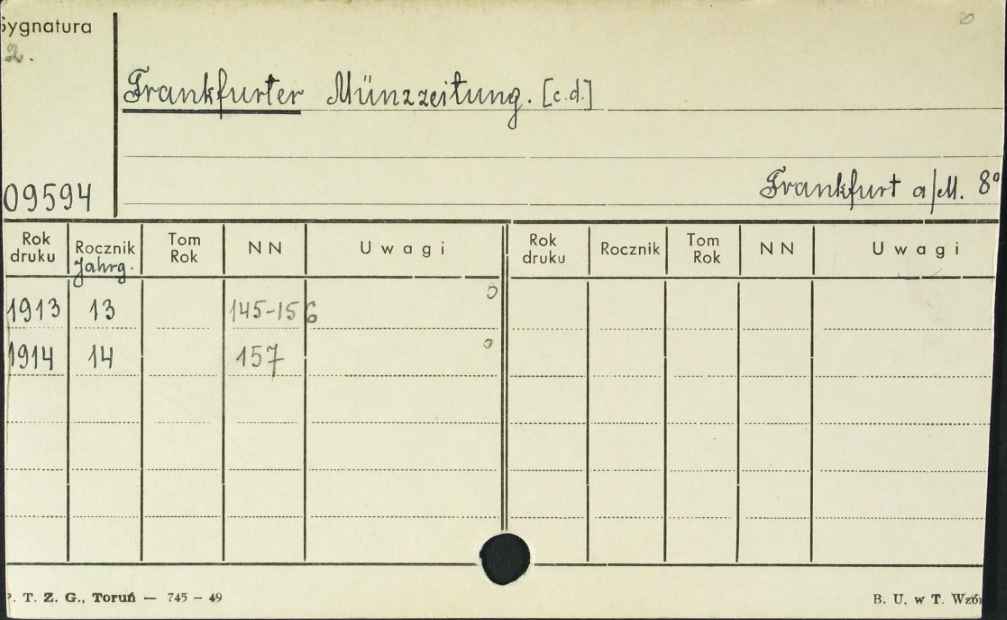 Sygnatura
2.
Frankfurter Münzzeitung. [c.d.]
Frankfurt a/M. 8°
09594
Rok druku Rocznik Jahrg. Tom Rok NN Uwagi Rok druku Rocznik Tom Rok NN Uwagi
1913 13 145-156 0
1914 14 157 0
T. Z. G., Toruń — 745 – 49
B. U. w T. Wzór